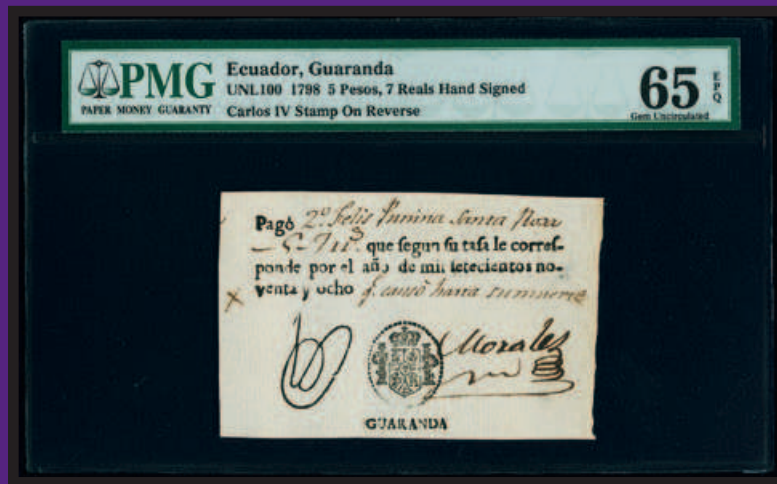 PMG
PAPER MONEY GUARANTY
Ecuador, Guaranda
UNL100 1798 5 Pesos, 7 Reals Hand Signed
Carlos IV Stamp On Reverse
65 EPQ
Gem Uncirculated
Pagò 2º. Felis Punina Santa Rosa
que segun su tasa le corres-
ponde por el año de mil setecientos no-
venta y ocho q. causò hasta su muerte
Morales
GUARANDA